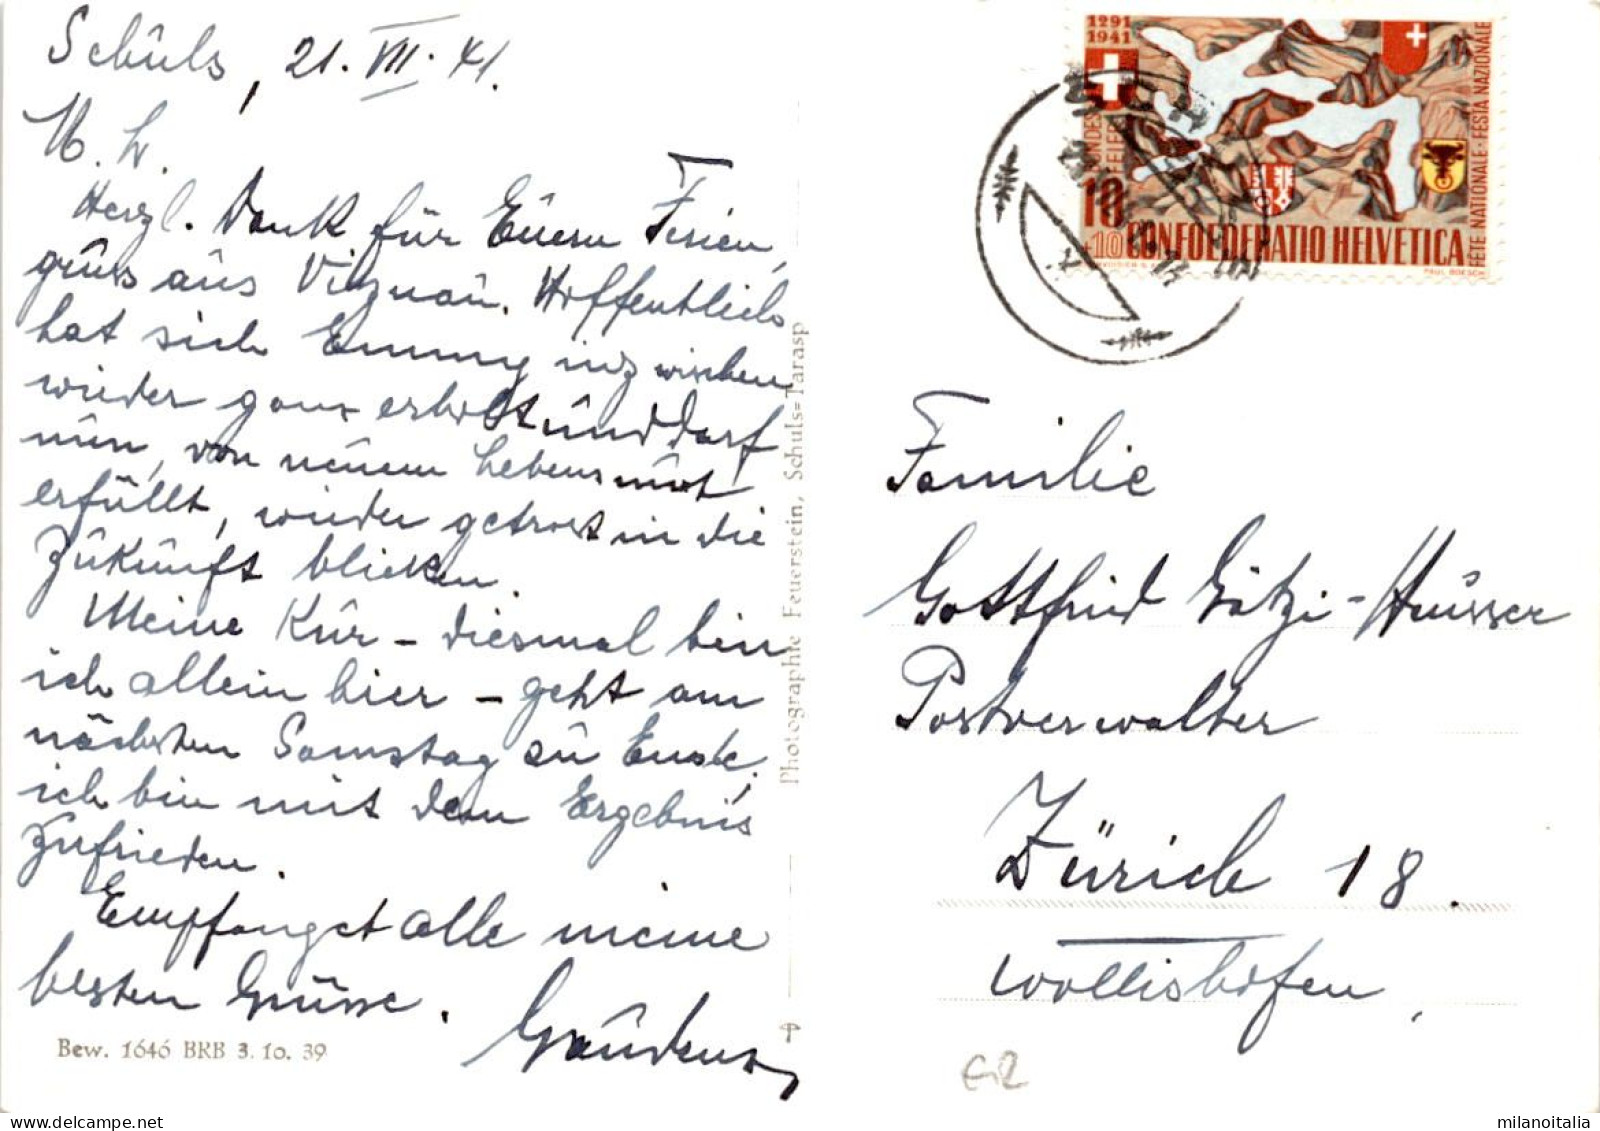 Schuls, 21. VII. 41.
M. L.
Herzl. Dank für Euern Ferien,
gruss aus Vitznau. Hoffentlich
hat sich Emmy inzwischen
wieder ganz erholt und darf
nun, von neuem Lebensmut
erfüllt, wieder getrost in die
Zukunft blicken.
Meine Kur – diesmal bin
ich allein hier – geht am
nächsten Samstag zu Ende,
ich bin mit dem Ergebnis
zufrieden.
Empfanget alle meine
besten Grüsse.
Gaudenz
Bew. 1646 BRB 3. 10. 39
Photographie Feuerstein, Schuls=Tarasp
1291
1941
BUNDES
FEIER
10
+10
CONFOEDERATIO HELVETICA
FÊTE NATIONALE · FESTA NAZIONALE
PAUL BOESCH
Familie
Gottfried Götzi-Hausser
Postverwalter
Zürich 18.
Wollishofen,
milanoitalia